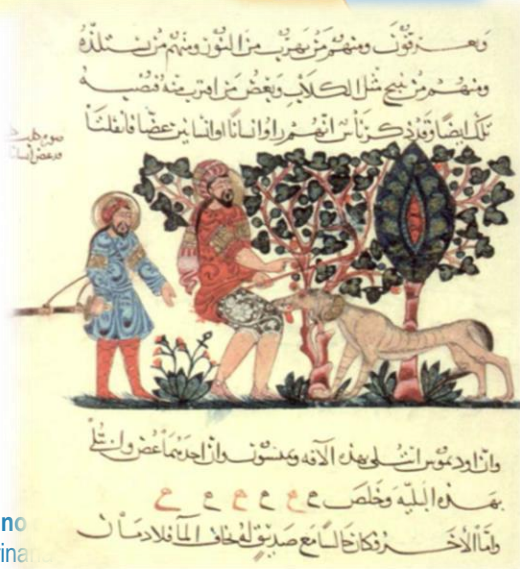 ومنهم من يهرب من النور ومنهم من يستلذه
ومنهم من ينبح مثل الكلاب ويعض من اقترب منه فتصيبه
تلك ايضا وقد ذكر ناس انهم راوا انسانا او انسانين عضا فافلتا
صورة كلب
قد عض انسانا
وان اوديموس ابتلى بهذه الافه وان احدهما عض وابتلى
بهذه البليه وخلص
no
واما الآخر فكان جالسا مع صديق له فخاف الما
rina